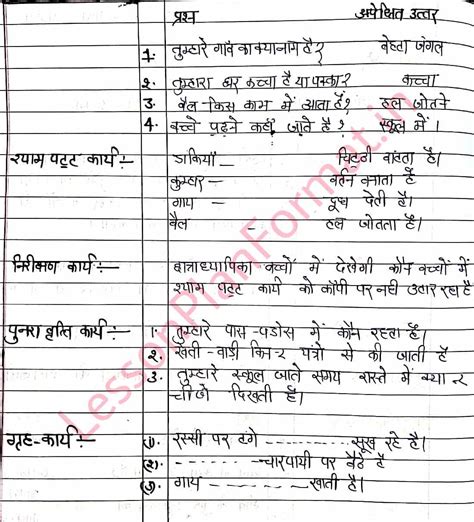 प्रश्न अपेक्षित उत्तर
1. तुम्हारे गाँव का क्या नाम है? बेहटा जंगल
2. तुम्हारा घर कच्चा है या पक्का? कच्चा
3. बैल किस काम में आता है? हल जोतने
4. बच्चे पढ़ने कहाँ जाते है? स्कूल में।
श्याम पट्ट कार्य :- डाकिया — चिट्ठी बांटता है।
कुम्हार — बर्तन बनाता है
गाय — दूध देती है।
बैल — हल जोतता है।
निरीक्षण कार्य :- छात्राध्यापिका बच्चों में देखेगी कौन बच्चों में
श्याम पट्ट कार्य को कॉपी पर नहीं उतार रहा है
पुनरावृत्ति कार्य :- 1. तुम्हारे पास-पडोस में कौन रहता है।
2. खेती-वाड़ी किन-2 यंत्रो से की जाती है
3. तुम्हारे स्कूल जाते समय रास्ते में क्या-2
चीजे दिखती है।
गृह-कार्य :- (1). रस्सी पर टंगे ---------- सूख रहे है।
(2). ---------- चारपायी पर बैठे है
(3) गाय ---------- खाती है।
LessonPlanFormat.in